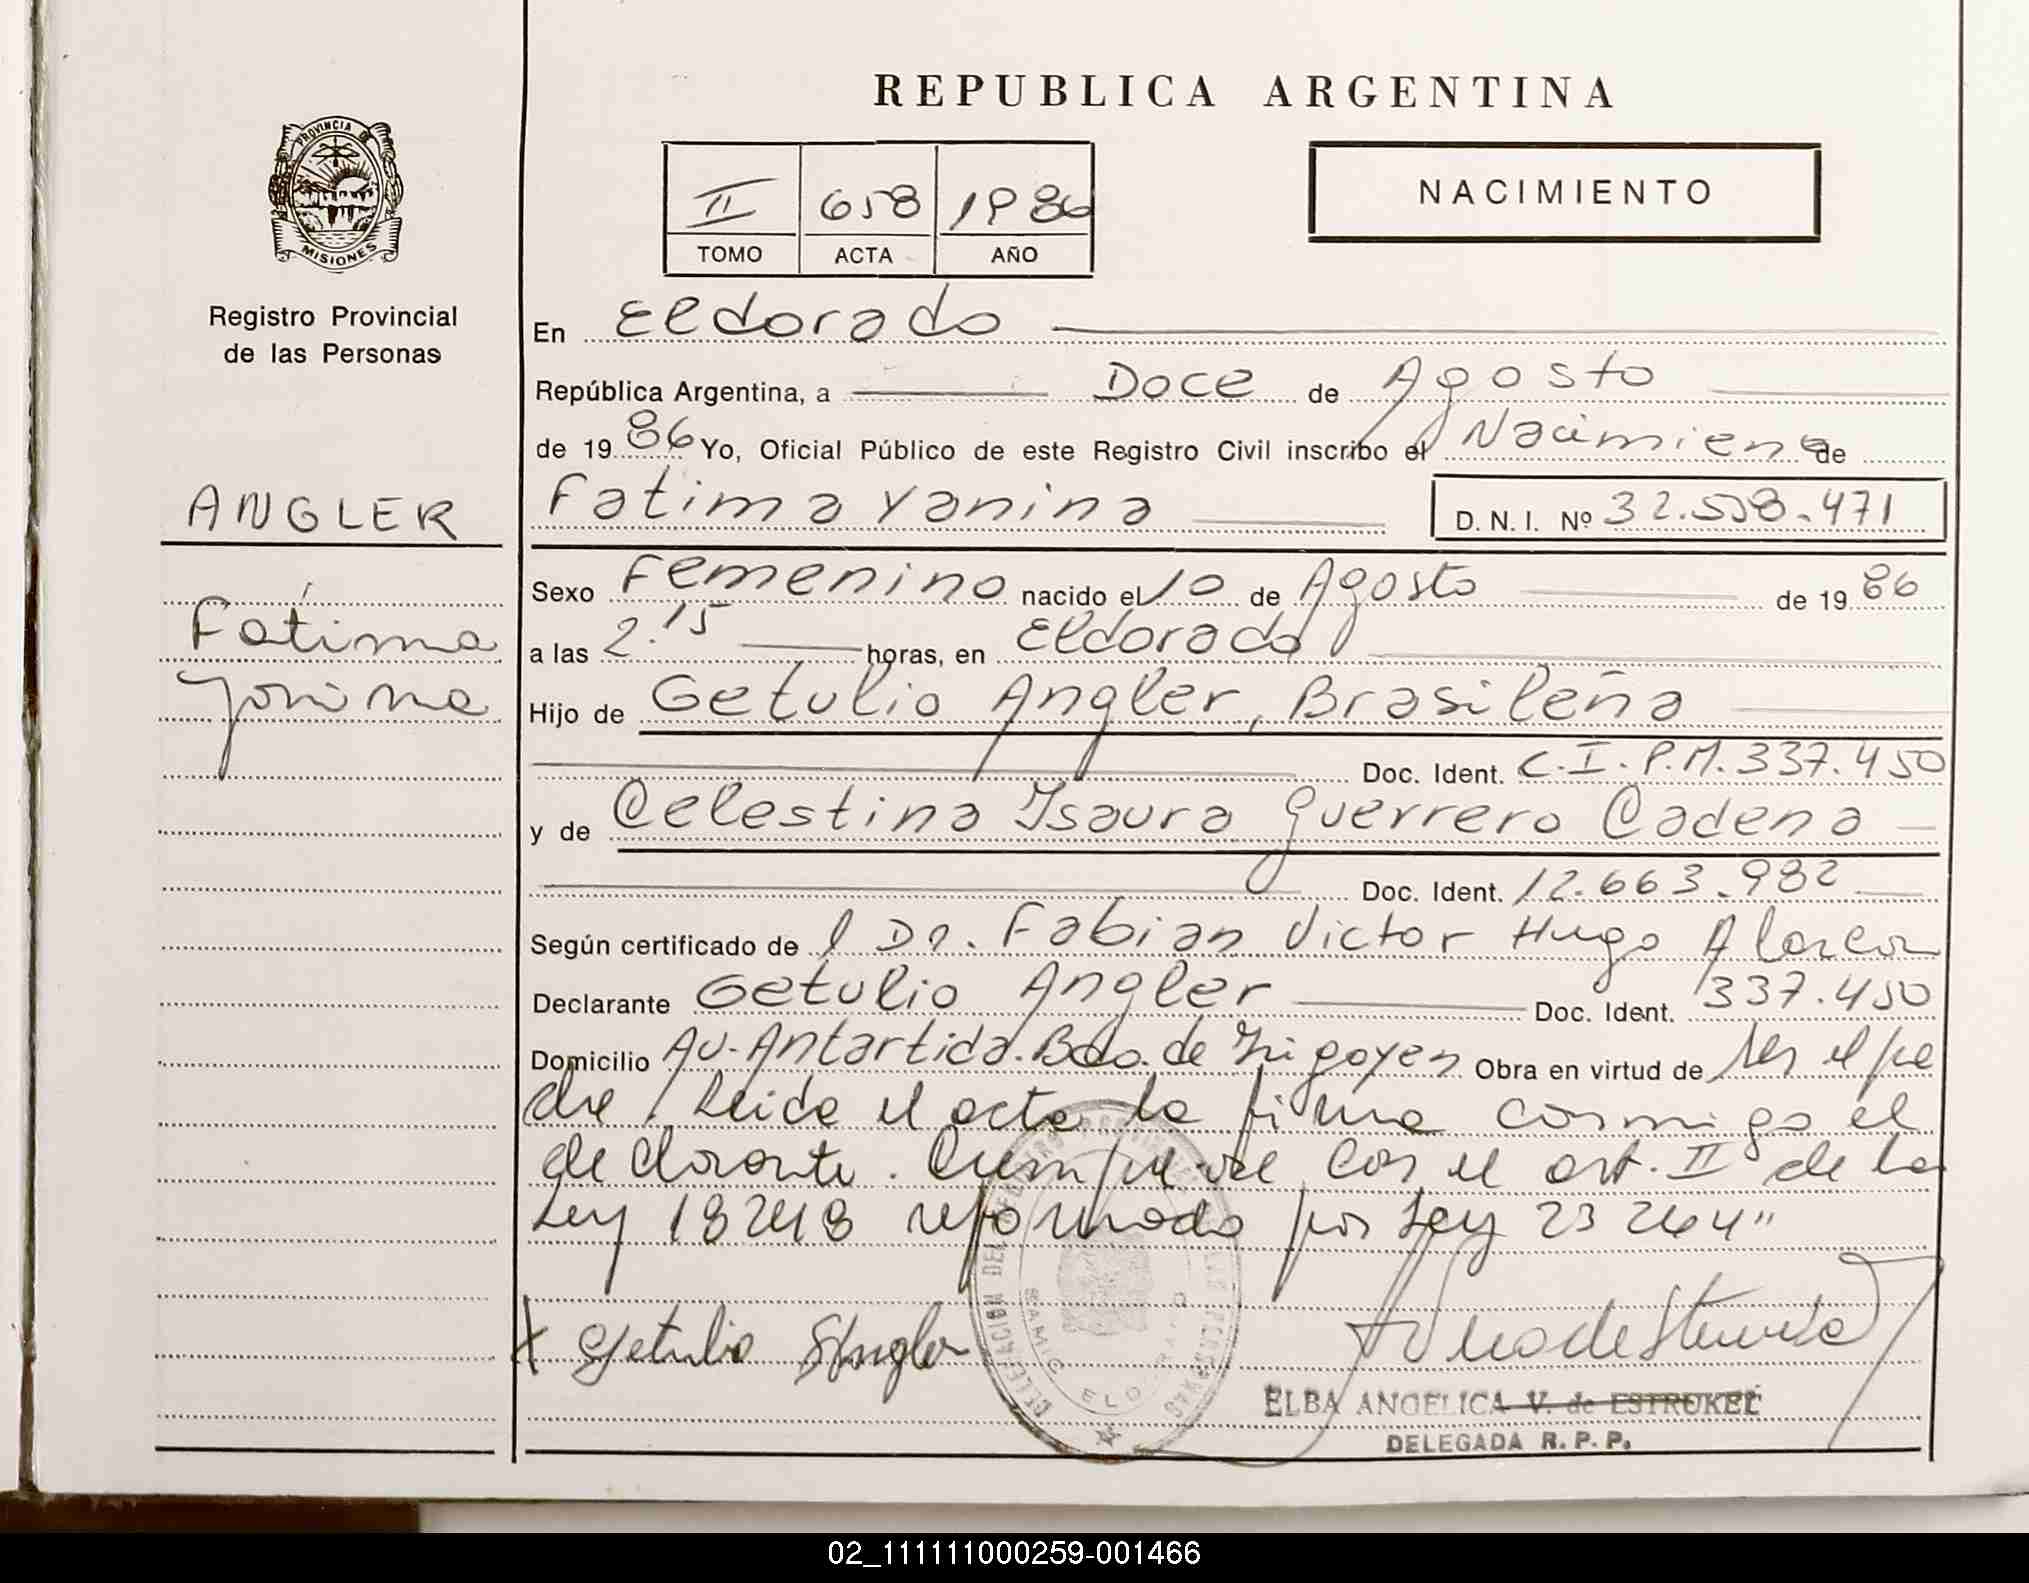 REPUBLICA ARGENTINA
PROVINCIA DE
MISIONES
Registro Provincial
de las Personas
II 658 1986
TOMO ACTA AÑO
NACIMIENTO
En Eldorado
República Argentina, a Doce de Agosto
de 1986 Yo, Oficial Público de este Registro Civil inscribo el Nacimien de
ANGLER
Fatima Yanina
D. N. I. Nº 32.558.471
Fátima
Yanina
Sexo Femenino nacido el 10 de Agosto de 1986
a las 2.15 horas, en Eldorado
Hijo de Getulio Angler, Brasileña
Doc. Ident. C.I.P.M. 337.450
y de Celestina Isaura Guerrero Cadena
Doc. Ident. 12.663.982
Según certificado de Dr. Fabian Victor Hugo Alarcon
Declarante Getulio Angler Doc. Ident. 337.450
Domicilio Av. Antartida. Bdo. de Irigoyen Obra en virtud de ser el pa
dre Leida el acta la firma conmigo el
declarante. Cumplese con el art. II de la
Ley 18248 reformado por Ley 23264"
X Getulio Angler
ELBA ANGELICA V. de ESTRUKEL
DELEGADA R. P. P.
02_111111000259-001466